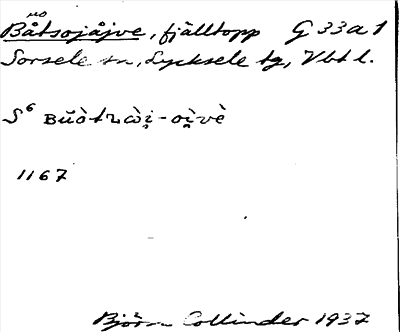 Båtsojåjve, fjälltopp G 33a1
Sorsele sn, Lycksele tg, Vbt l.
S⁶
1167
Björn Collinder 1937